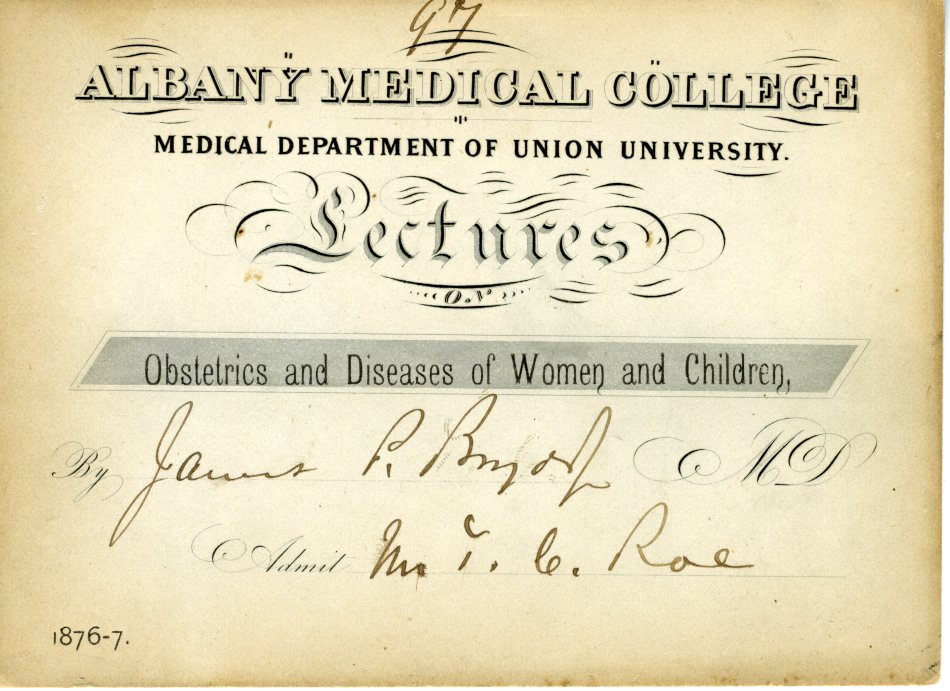 97
ALBANY MEDICAL COLLEGE
MEDICAL DEPARTMENT OF UNION UNIVERSITY.
Lectures
ON
Obstetrics and Diseases of Women and Children,
By James P. Boyd MD
Admit Mr T. C. Roe
1876-7.